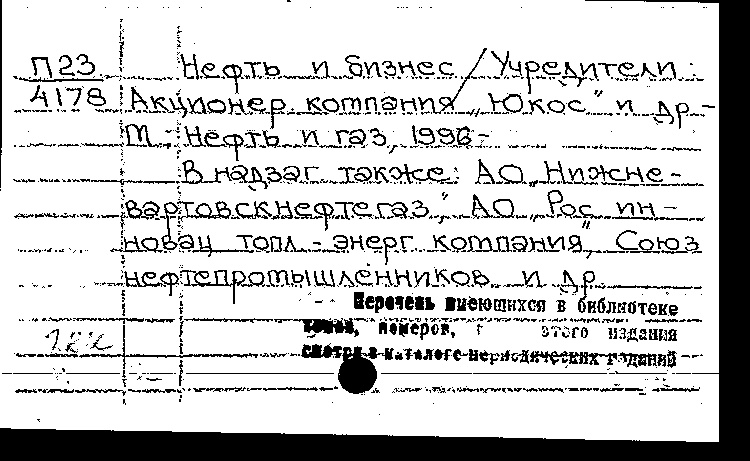 П23 Нефть и бизнес / Учредители:
4178 Акционер. компания „Юкос" и др. -
М.: Нефть и газ, 1996-
В надзаг. также: АО „Нижне-
вартовскнефтегаз", АО „Рос. ин-
новац. топл.-энерг. компания", Союз
нефтепромышленников и др.
Перечень имеющихся в библиотеке
томов, номеров, г этого издания
смотри в каталоге периодических изданий